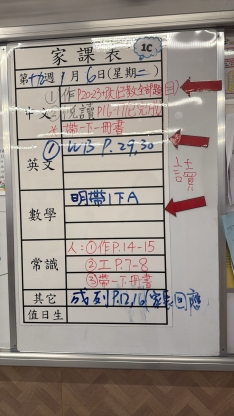 家課表
1C
第十九週 1月6日(星期二)
中文
① 作P.20-23+改(已教全部題目)
② 悅讀 P.16-17(已完成)
③ 帶一下一冊書
英文
① WB P. 29,30
數學
明帶1下A
常識
人:①作P.14-15
②工P.7-8
③帶一下冊書
其它
成列P.12,16(家長回應
值日生